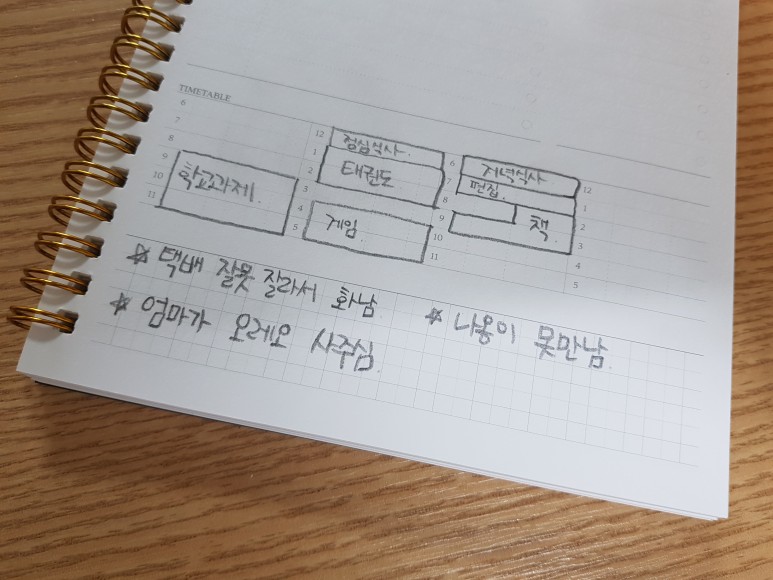 TIMETABLE
6
7
8
9
10
11
학교과제.
12
1
2
3
4
5
점심식사.
태권도
게임.
6
7
8
9
10
11
저녁식사
편집.
책.
12
1
2
3
4
5
☆ 택배 잘못 잘라서 화남
☆ 엄마가 오레오 사주심
☆ 나용이 못만남.